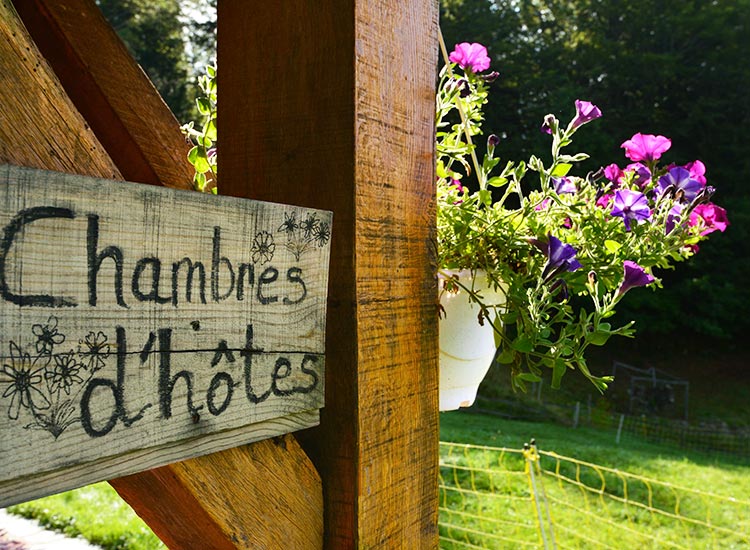 Chambres
d'hôtes